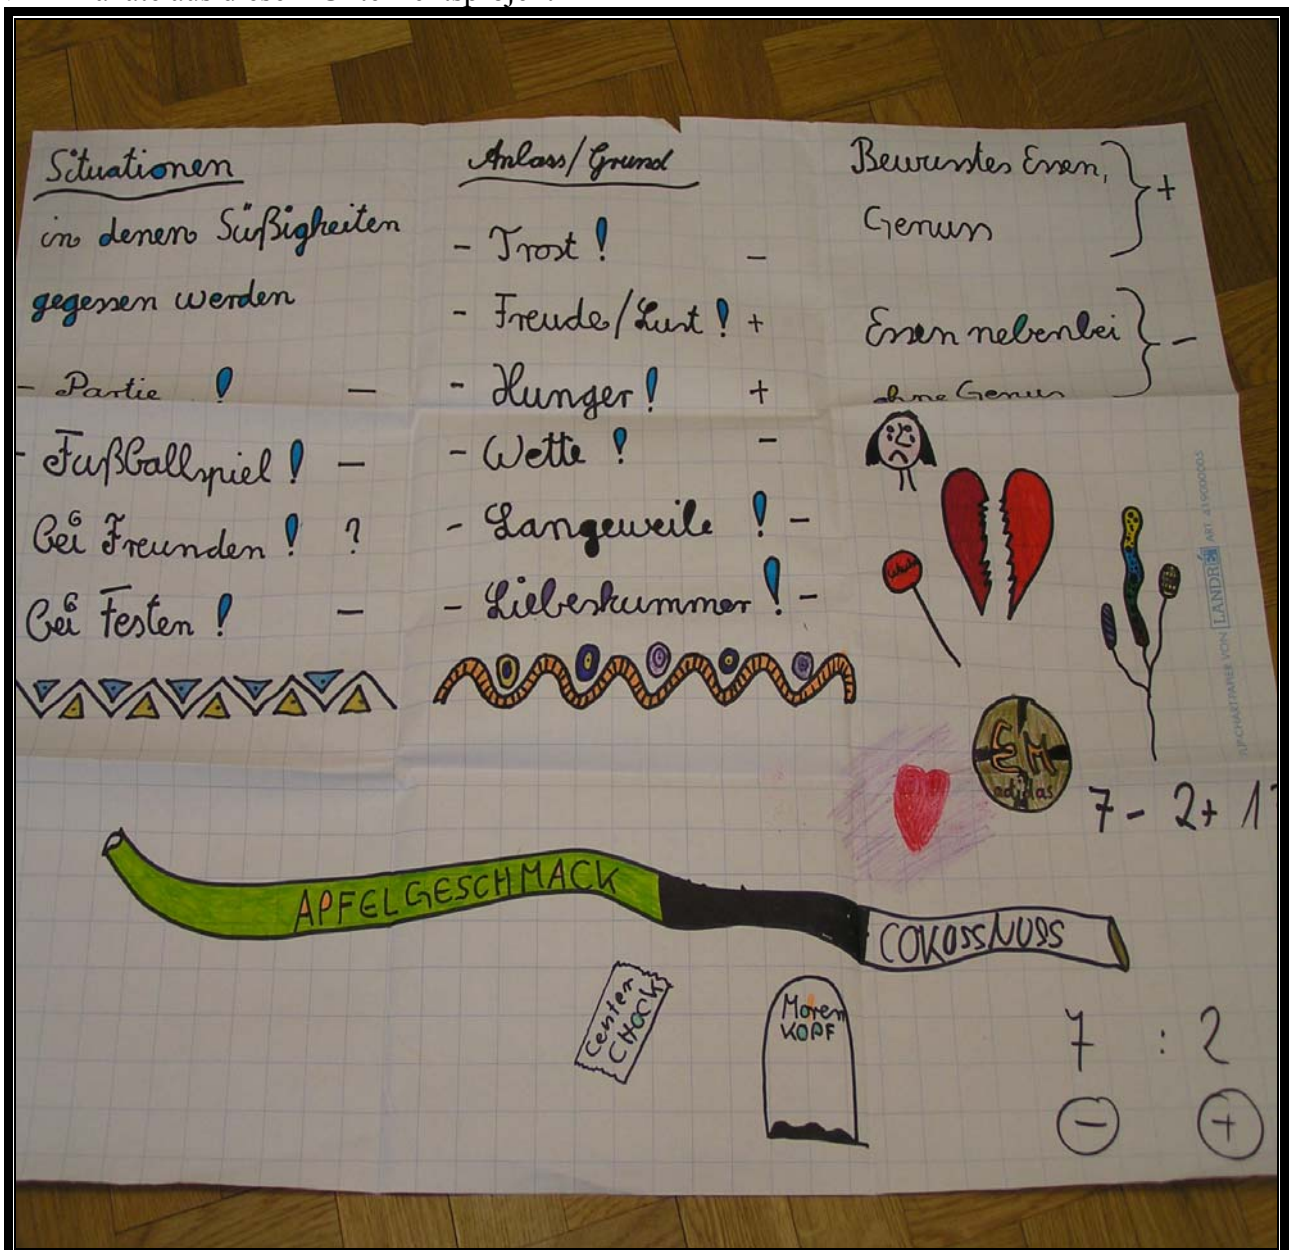 Situationen
in denen Süßigkeiten
gegessen werden
- Partie ! -
- Fußballspiel ! -
bei Freunden ! ?
bei Festen ! -
Anlass/Grund
- Trost ! -
- Freude/Lust ! +
- Hunger ! +
- Wette ! -
- Langeweile ! -
- Liebeskummer ! -
Bewusstes Essen, } +
Genuss
Essen nebenbei } -
ohne Genuss
LANDRÉ ART. 419000005
EM
adidas
7 - 2+ 1?
APFELGESCHMACK
COKOSSNUSS
Center
CHOCK
Moren
KOPF
7 : 2
- +